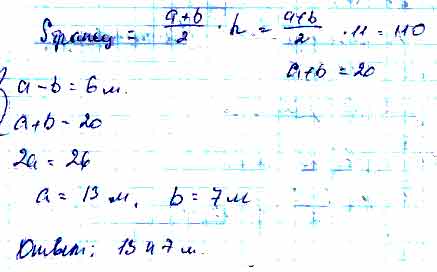 Sтрапец = (a+b)/2 · h = (a+b)/2 · 11 = 110
a+b = 20
{ a - b = 6 м.
a+b = 20
2a = 26
a = 13 м, b = 7 м
Ответ: 13 и 7 м.